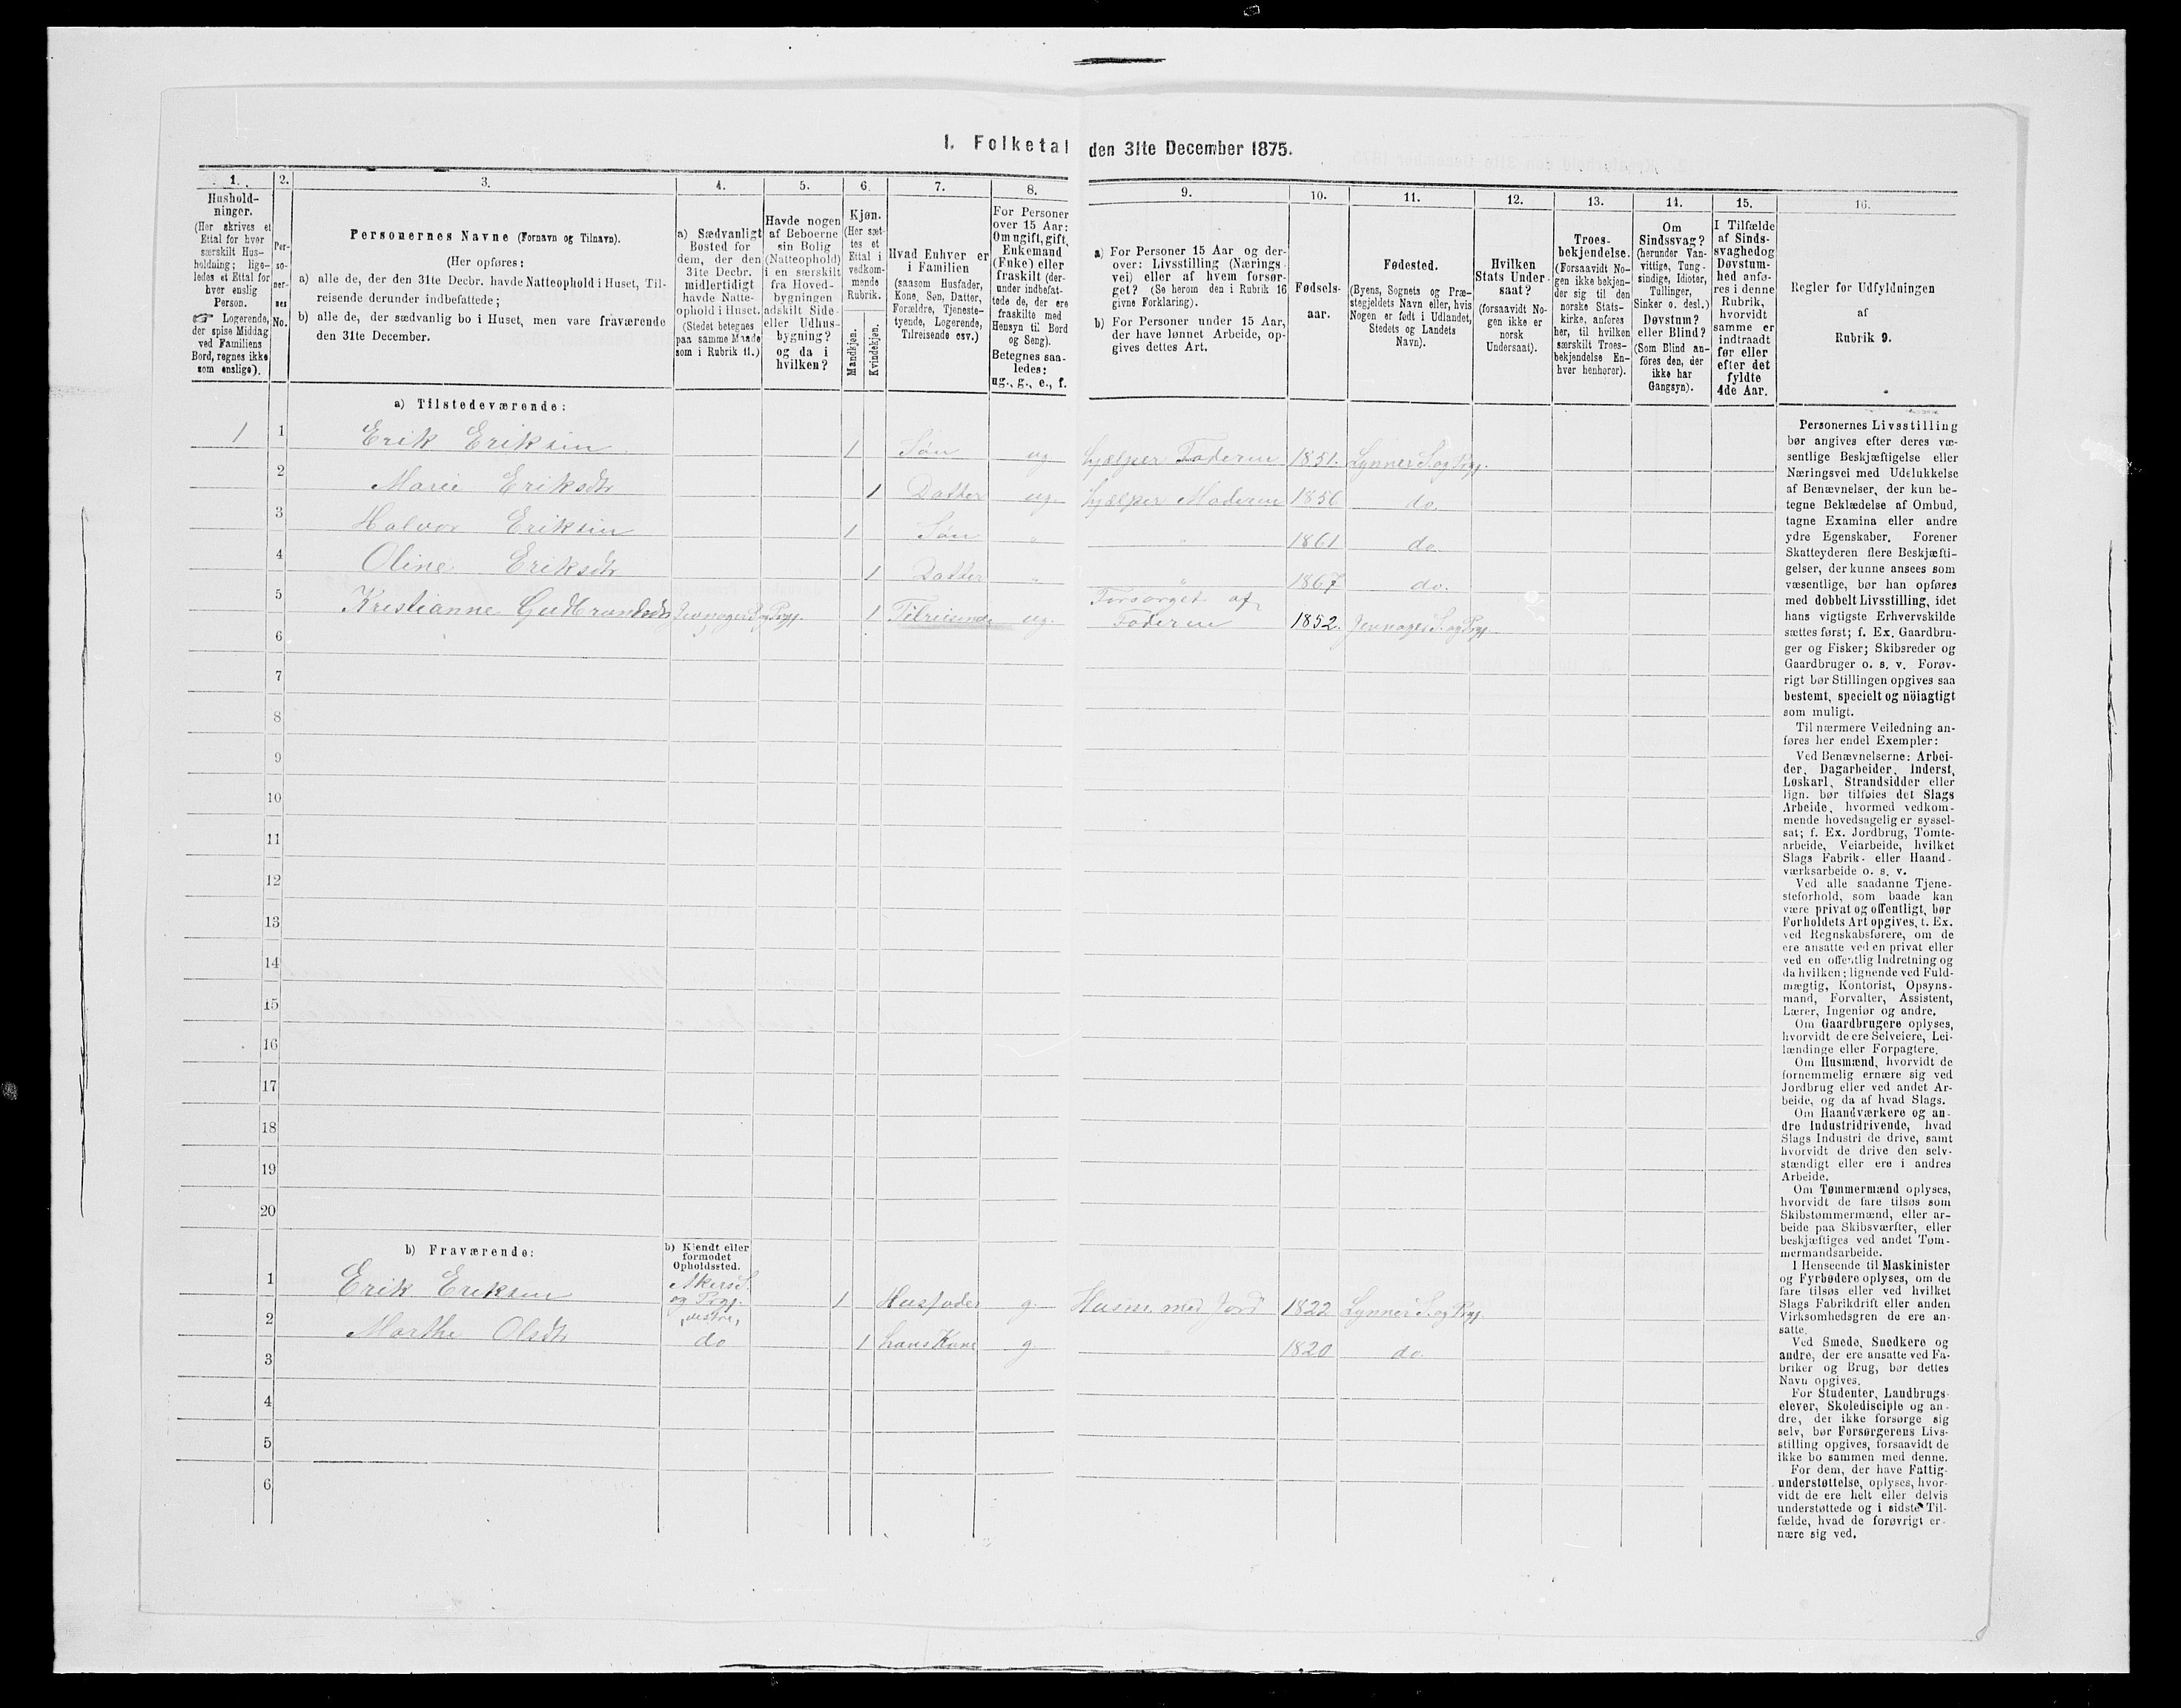 I. Folketal den 31te December 1875.
1. 2. 3. 4. 5. 6. 7. 8. 9. 10. 11. 12. 13. 14. 15. 16.
Hushold-
ninger.
(Her skrives et
Ettal for hver
særskilt Hus-
holdning; lige-
ledes et Ettal for
hver enslig
Person.
☞ Logerende,
der spise Middag
ved Familiens
Bord, regnes ikke
som enslige).
Per-
so-
ner-
nes
No.
Personernes Navne (Fornavn og Tilnavn).
(Her opføres:
a) alle de, der den 31te Decbr. havde Natteophold i Huset, Til-
reisende derunder indbefattede;
b) alle de, der sædvanlig bo i Huset, men vare fraværende
den 31te December.
a) Sædvanligt
Bosted for
dem, der den
31te Decbr.
midlertidigt
havde Natte-
ophold i Huset.
(Stedet betegnes
paa samme Maade
som i Rubrik 11.)
Havde nogen
af Beboerne
sin Bolig
(Natteophold)
i en særskilt
fra Hoved-
bygningen
adskilt Side-
eller Udhus-
bygning?
og da i
hvilken?
Kjøn.
(Her sæt-
tes et
Ettal i
vedkom-
mende
Rubrik.
Mandkjøn.
Kvindekjøn.
Hvad Enhver er
i Familien
(saasom Husfader,
Kone, Søn, Datter,
Forældre, Tjeneste-
tyende, Logerende,
Tilreisende osv.)
For Personer
over 15 Aar:
Om ugift, gift,
Enkemand
(Enke) eller
fraskilt (der-
under indbefat-
tede de, der ere
fraskilte med
Hensyn til Bord
og Seng).
Betegnes saa-
ledes:
ug., g., e., f.
a) For Personer 15 Aar og der-
over: Livsstilling (Nærings-
vei) eller af hvem forsør-
get? (Se herom den i Rubrik 16
givne Forklaring).
b) For Personer under 15 Aar,
der have lønnet Arbeide, op-
gives dettes Art.
Fødsels-
aar.
Fødested.
(Byens, Sognets og Præ-
stegjeldets Navn eller, hvis
Nogen er født i Udlandet,
Stedets og Landets
Navn).
Hvilken
Stats Under-
saat?
(forsaavidt No-
gen ikke er
norsk
Undersaat).
Troes-
bekjendelse.
(Forsaavidt No-
gen ikke bekjen-
der sig til den
norske Stats-
kirke, anføres
her, til hvilken
særskilt Troes-
bekjendelse En-
hver henhører).
Om
Sindssvag?
(herunder Van-
vittige, Tung-
sindige, Idioter,
Tullinger,
Sinker o. desl.)
Døvstum?
eller Blind?
(Som Blind an-
föres den, der
ikke har
Gangsyn).
I Tilfælde
af Sinds-
svaghed og
Døvstum-
hed anfø-
res i denne
Rubrik,
hvorvidt
samme er
indtraadt
før eller
efter det
fyldte
4de Aar.
Regler for Udfyldningen
af
Rubrik 9.
a) Tilstedeværende:
1 1 Erik Eriksen 1 Søn ug hjælper Faderen 1851. Lynner S. og Prgj.
2 Marie Eriksdtr 1 Datter ug. hjælper Moderen 1856 do.
3 Halvor Eriksen 1 Søn „ „ 1861 do.
4 Oline Eriksdtr 1 Datter „ „ 1867 do.
5 Kristianne Gudbrandsdtr Jevnager S. og Prgj. 1 Tilreisende ug. Forsørget af
Faderen 1852. Jevnager S. og Prgj.
6
7
8
9
10
11
12
13
14
15
16
17
18
19
20
b) Fraværende:
b) Kjendt eller
formodet
Opholdssted.
1 Erik Eriksen Akers S.
og Prgj.
vestre, 1 Husfader g. Husm. med Jord 1822 Lynner S. og Prgj.
2 Marthe Olsdtr do 1 hans Kone g 1820 do
3
4
5
6
Personernes Livsstilling
bør angives efter deres væ-
sentlige Beskjæftigelse eller
Næringsvei med Udelukkelse
af Benævnelser, der kun be-
tegne Beklædelse af Ombud,
tagne Examina eller andre
ydre Egenskaber. Forener
Skatteyderen flere Beskjæfti-
gelser, der kunne ansees som
væsentlige, bør han opføres
med dobbelt Livsstilling, idet
hans vigtigste Erhvervskilde
sættes først; f. Ex. Gaardbru-
ger og Fisker; Skibsreder og
Gaardbruger o. s. v. Forøv-
rigt bør Stillingen opgives saa
bestemt, specielt og nöiagtigt
som muligt.
Til nærmere Veiledning an-
føres her endel Exempler:
Ved Benævnelserne: Arbei-
der, Dagarbeider, Inderst,
Løskarl, Strandsidder eller
lign. bør tilføies det Slags
Arbeide, hvormed vedkom-
mende hovedsagelig er syssel-
sat; f. Ex. Jordbrug, Tomte-
arbeide, Veiarbeide, hvilket
Slags Fabrik- eller Haand-
værksarbeide o. s. v.
Ved alle saadanne Tjene-
steforhold, som baade kan
være privat og offentligt, bør
Forholdets Art opgives, t. Ex.
ved Regnskabsførere, om de
ere ansatte ved en privat eller
ved en offentlig Indretning og
da hvilken; lignende ved Fuld-
mægtig, Kontorist, Opsyns-
mand, Forvalter, Assistent,
Lærer, Ingeniør og andre.
Om Gaardbrugere oplyses,
hvorvidt de ere Selveiere, Lei-
lændinge eller Forpagtere.
Om Husmænd, hvorvidt de
fornemmelig ernære sig ved
Jordbrug eller ved andet Ar-
beide, og da af hvad Slags.
Om Haandværkere og an-
dre Industridrivende, hvad
Slags Industri de drive, samt
hvorvidt de drive den selv-
stændigt eller ere i andres
Arbeide.
Om Tømmermænd oplyses,
hvorvidt de fare tilsøs som
Skibstømmermænd, eller ar-
beide paa Skibsværfter, eller
beskjæftiges ved andet Tøm-
mermandsarbeide.
I Henseende til Maskinister
og Fyrbødere oplyses, om de
fare tilsøs eller ved hvilket
Slags Fabrikdrift eller anden
Virksomhedsgren de ere an-
satte.
Ved Smede, Snedkere og
andre, der ere ansatte ved Fa-
briker og Brug, bør dettes
Navn opgives.
For Studenter, Landbrugs-
elever, Skoledisciple og an-
dre, der ikke forsørge sig
selv, bør Forsørgerens Livs-
stilling opgives, forsaavidt de
ikke bo sammen med denne.
For dem, der have Fattig-
understøttelse, oplyses, hvor-
vidt de ere helt eller delvis
understøttede og i sidste Til-
fælde, hvad de forøvrigt er-
nære sig ved.